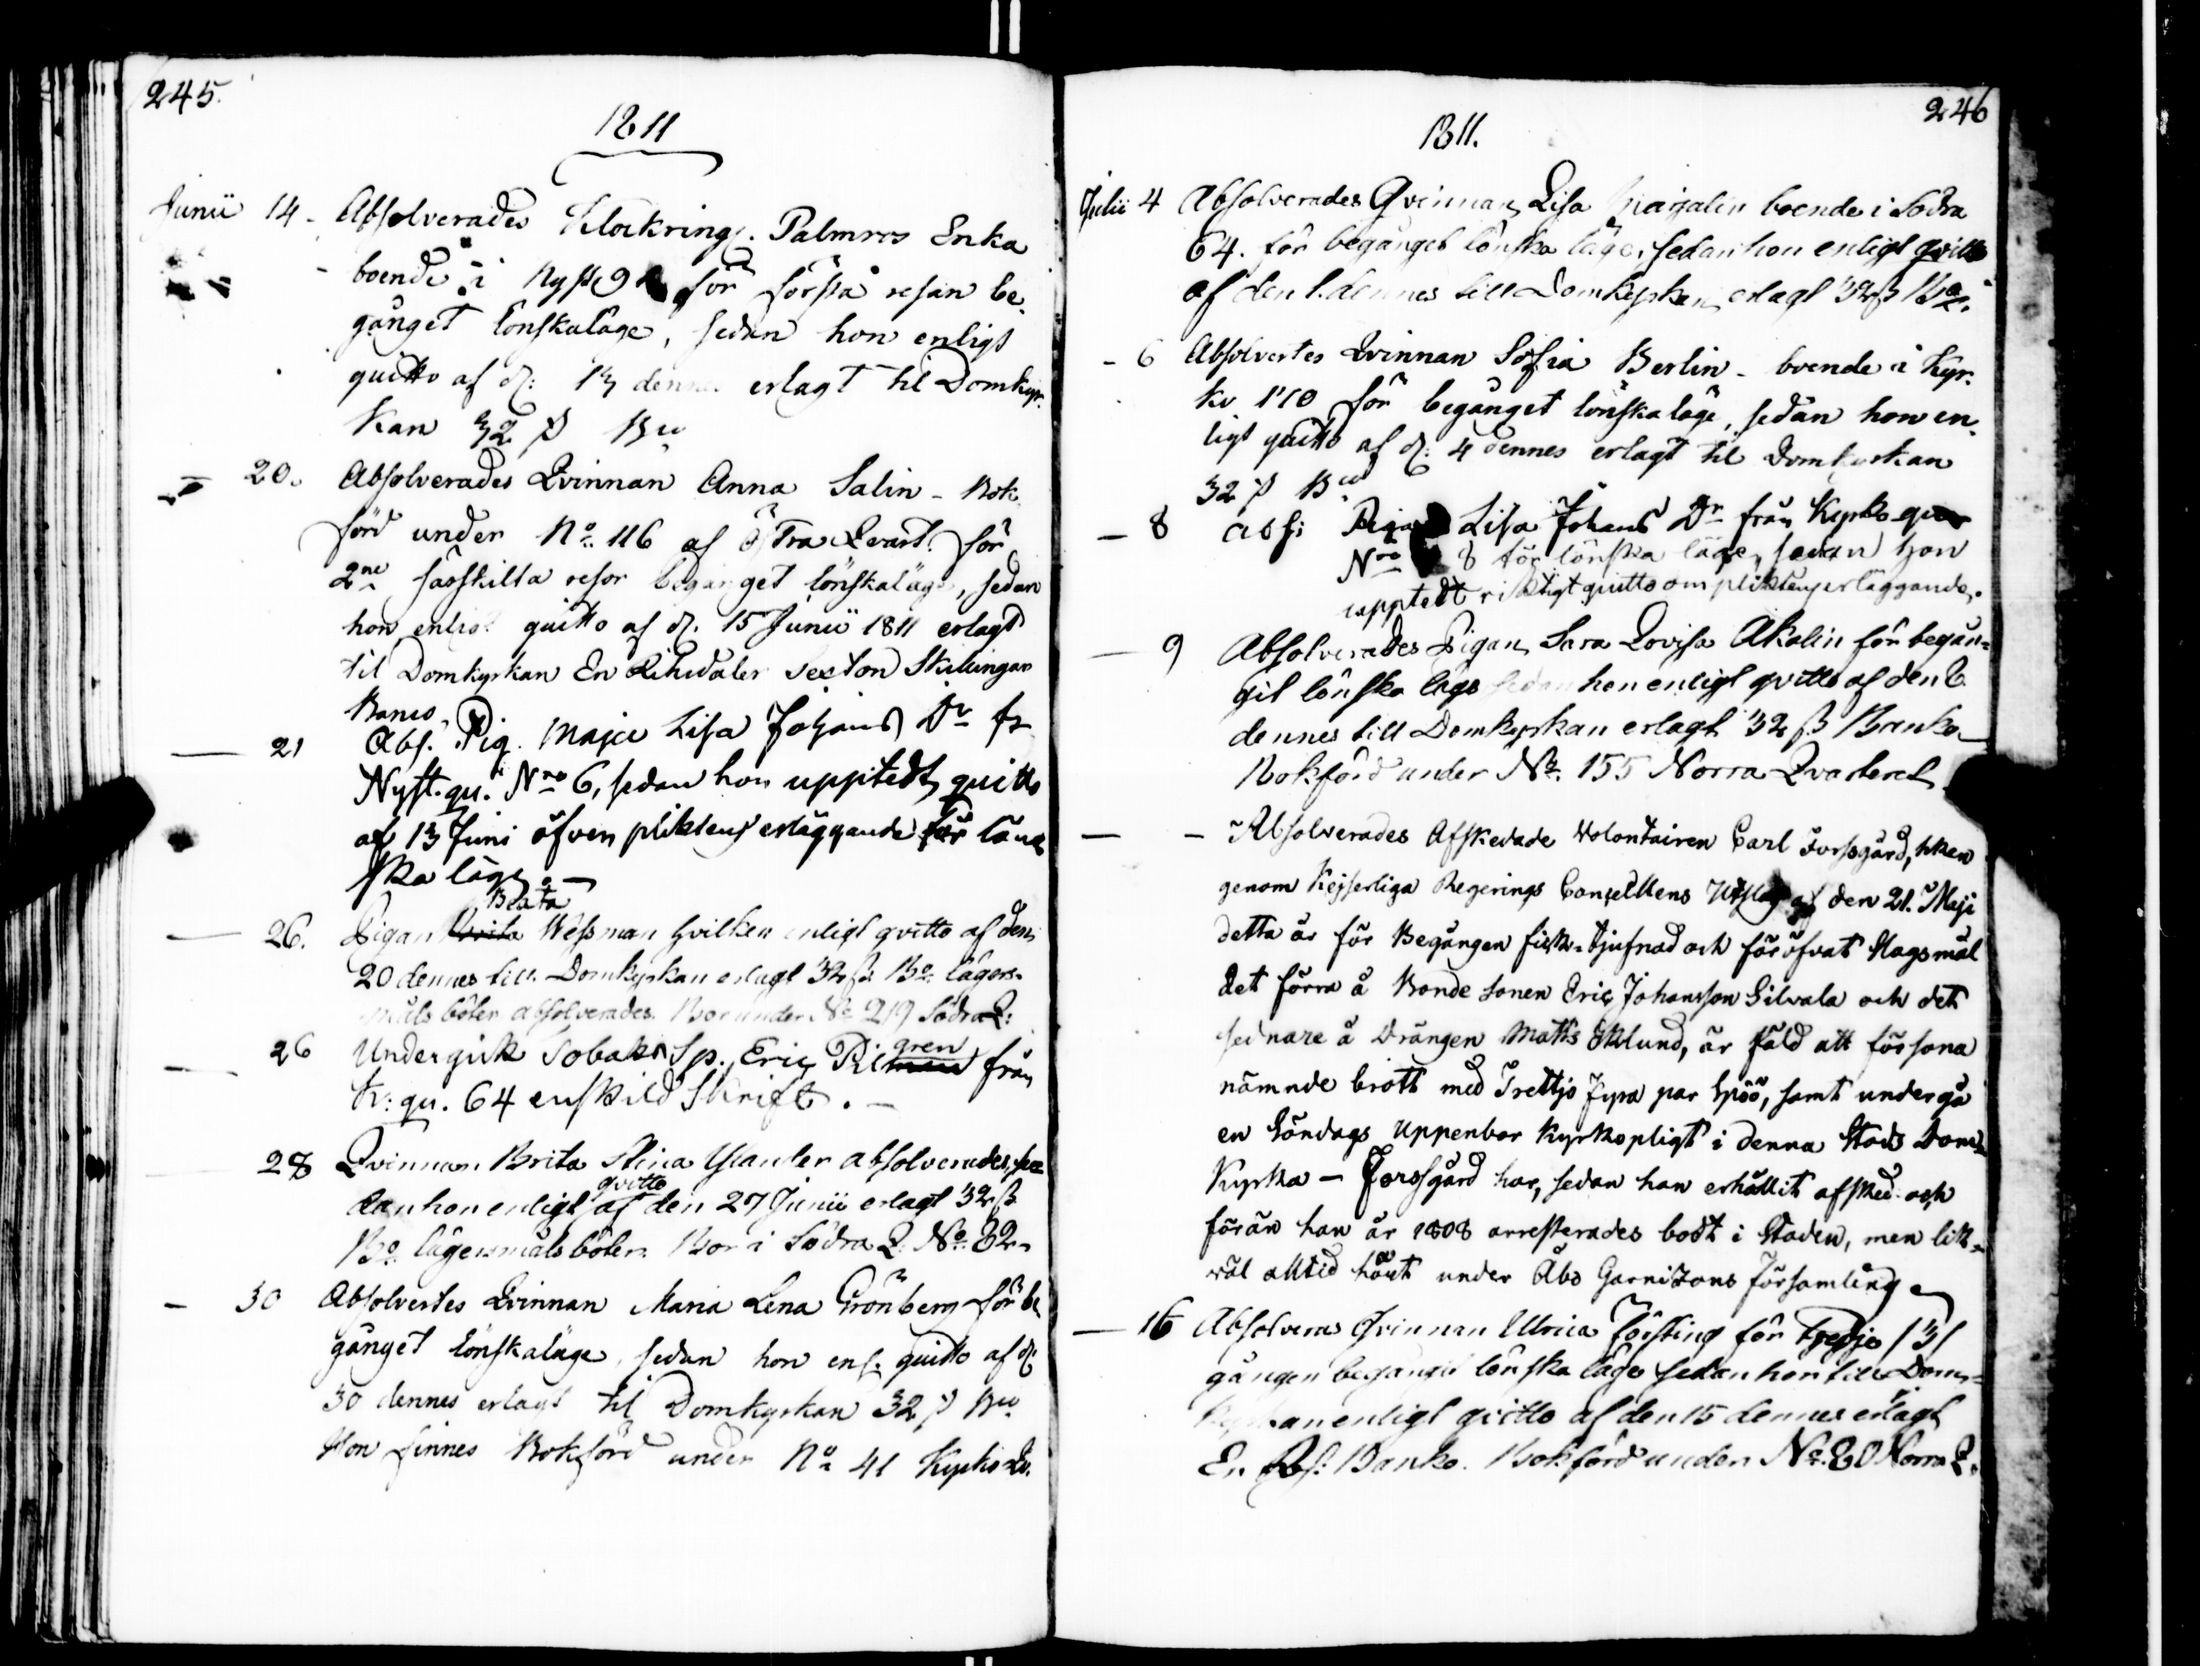 245.
1811
Junii 14. Absolverades Klockring. Palmros Enka
boende i Nyst 9 för första resan be-
gånget lönskaläge, sedan hon enligt
quitto af d: 13 dennes erlagt til Domkyr-
kan 32 ß Bco
20. Absolverades Qvinnan Anna Salin - Bok-
förd under No 116 af Östra Qvart. för
2ne särskilta resor begånget lönskaläge, sedan
hon enligt quitto af d. 15 Junii 1811 erlagt
til Domkyrkan En Riksdaler sexton Skillingar
Banco.
21 Abs. Pig. Maja Lisa Johans Dr fr
Nyst. qu. Nro 6, sedan hon upptedt quitto
af 13 Juni öfver pliktens erläggande för löns
ska läge. —
Beata
26. Pigan Brita Wessman hvilken enligt qvitto af den
20 dennes till Domkyrkan erlagt 32 ß Bo lägers-
måls böter absolverades. Bor under No 219 Södra Q:
gren
26 Undergick Tobaks Sp. Eric Rilman från
K: qu. 64 enskild Skrift. —
28 Qvinnan Brita Stina Ulander absolverades, se-
qvitto
dan hon enligt af den 27 Junii erlagt 32 ß
Bo lägersmåls böter. Bor i Södra Q: No 82.
30 Absolvertes Qvinnan Maria Lena Grönberg för be-
gånget lönskaläge, sedan hon enl. quitto af d:
30 dennes erlagt til Domkyrkan 32 ß Bco
Hon finnes Bokförd under No 41 Kyrko Qv.
246
1811.
Julii 4 Absolverades Qvinnan Lisa boende i Södra
64. för begånget lönska läge, sedan hon enligt qvitto
af den 1. dennes till Domkyrkan erlagt 32 ß Bco.
- 6 Absolvertes Qvinnan Sofia Berlin - boende i Kyr-
ko 110 för begånget lönskaläge, sedan hon en-
ligt quitto af d: 4 dennes erlagt til Domkyrkan
32 ß Bco
8 abs: Pigan Lisa Johans Dr från Kyrko qu
Nro 8 för lönska läge, sedan hon
upptedt riktigt quitto om pliktens erläggande.
9 Absolverades Pigan Sara Lovisa Akalin för begån-
git lönska läge sedan hon enligt qvitto af den 8
dennes till Domkyrkan erlagt 32 ß Banko
Bokförd under No. 155 Norra Qvarteret
— - Absolverades Afskedade Volontairen Carl Forssgård, hken
genom Kejserliga Regerings Conseillens Utslag af den 21. Maji
detta år för Begången fisk-tjufnad och föröfvat Slagsmål
det förra å Bonde Sonen Eric Johansson Silvala och det
sednare å Drängen Matts Eklund, är fäld att försona
nämnde brott med Trettjo fyra par Spöö, samt undergå
en Söndags Uppenbar Kyrkopligt i denna Stads Dom-
Kyrka — Forssgård har, sedan han erhållit afsked och
förän han år 1808 arresterades bodt i Staden, men lik-
väl alltid hört under Åbo Garnizons församling
16 Absolveras Qvinnan Ulrica Försting för tredje /3/
gången begångit lönska läge sedan hon till Dom-
kyrkan enligt qvitto af den 15 dennes erlagt
En Rs: Banko. Bokförd under No. 80 Norra Q.